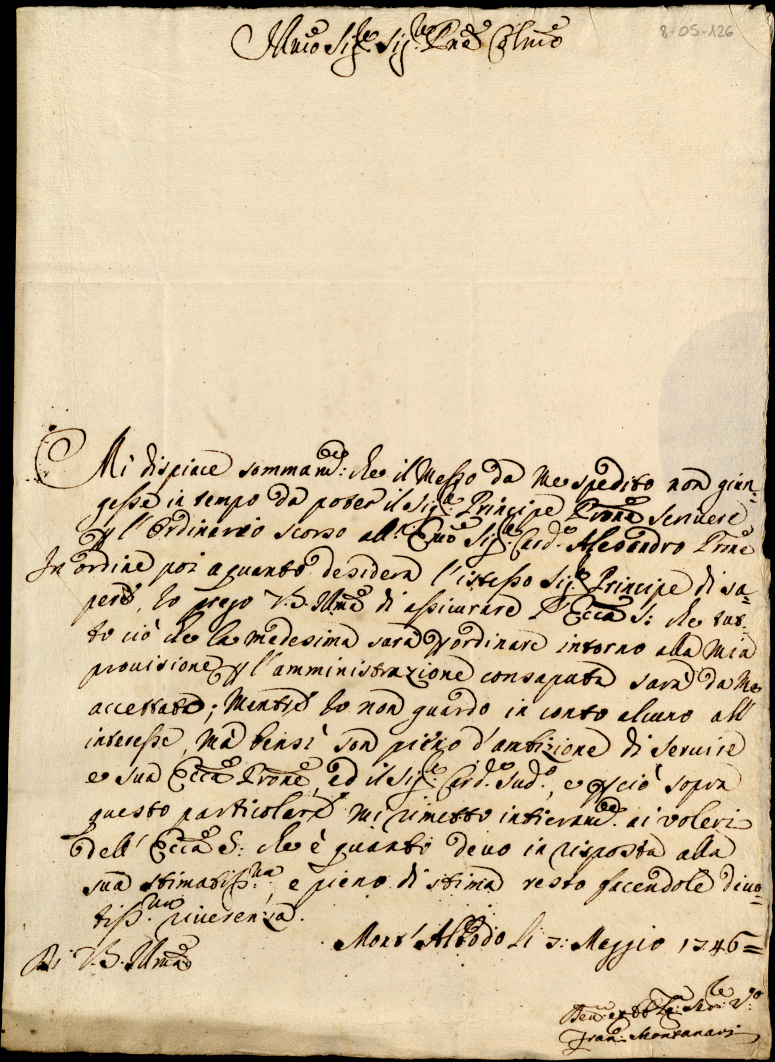 Illmo Sig.re Sig.re Pne Colmo
8-05-126
Mi dispiace sommam.te: che il Messo da Me spedito non giun-
gesse in tempo da poter il Sig.re Principe Prone scrivere
p l'Ordinario scorso all' Emo Sig.re Card.e Alesandro Prone
In ordine poi a quanto desidera l'istesso Sig.re Principe di sa-
pere, Io prego V.S. Illma di assicurare l'Ecca S: che tut-
to ciò che la medesima sarà p ordinare intorno alla Mia
provisione p l'amministrazione consaputa sarà da Me
accettato; Mentre Io non guardo in conto alcuno all'
interesse, Mà bensì son pieno d'ambizione di servire
e sua Ecca Prone, ed il Sig.re Card.e Sud.o, e p ciò sopra
questo particolare mi rimetto intieram.te ai voleri
dell' Ecca S: che è quanto devo in risposta alla
sua stimatiss.ma, e pieno di stima resto facendole divo-
tiss.ma riverenza.
Mont' Alboddo li 7: Maggio 1746=
Di V.S. Illma
Fran.o Montanari